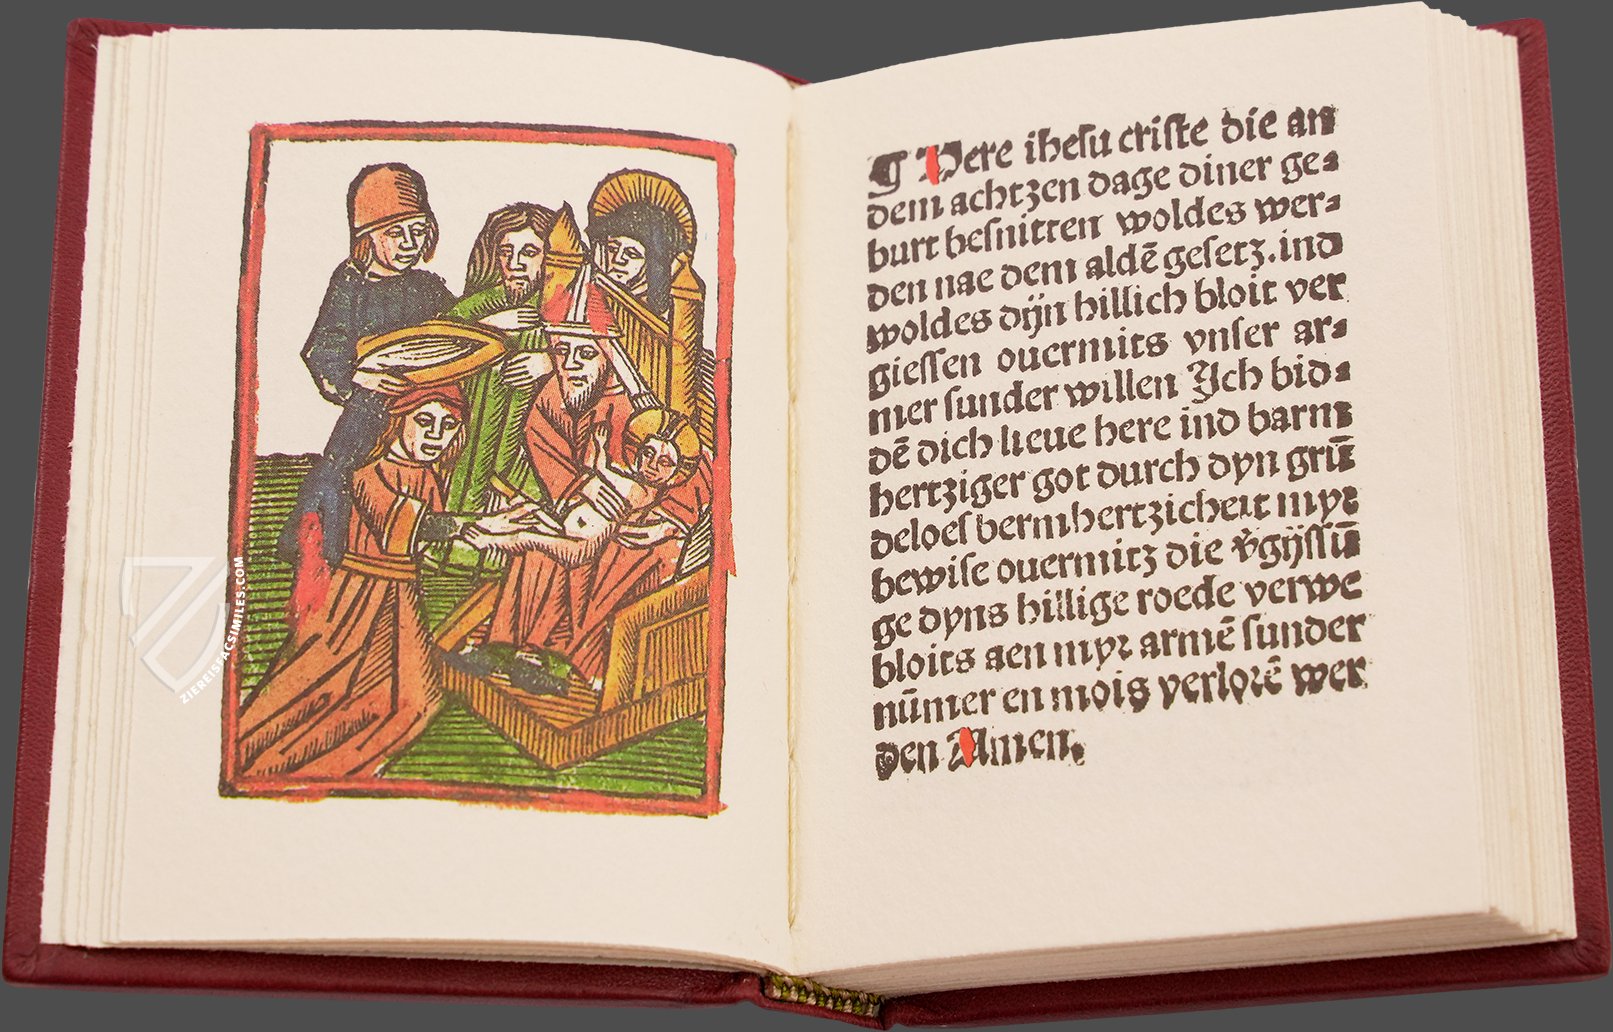 ZIEREISFACSIMILES.COM
¶ Here ihesu criste die an
dem achtzen dage diner ge⸗
burt besnitten woldes wer⸗
den nae dem aldē gesetz. ind
woldes dijn hillich bloit ver
giessen ouermits vnser ar⸗
mer sunder willen Ich bid⸗
dē dich lieue here ind barm
hertziger got durch dyn grū
deloes bermhertzicheit myr
bewise ouermitz die v̄gijssū
ge dyns hillige roede verwe
bloits aen myr armē sunder
nūmer en mois verlorē wer
den Amen.